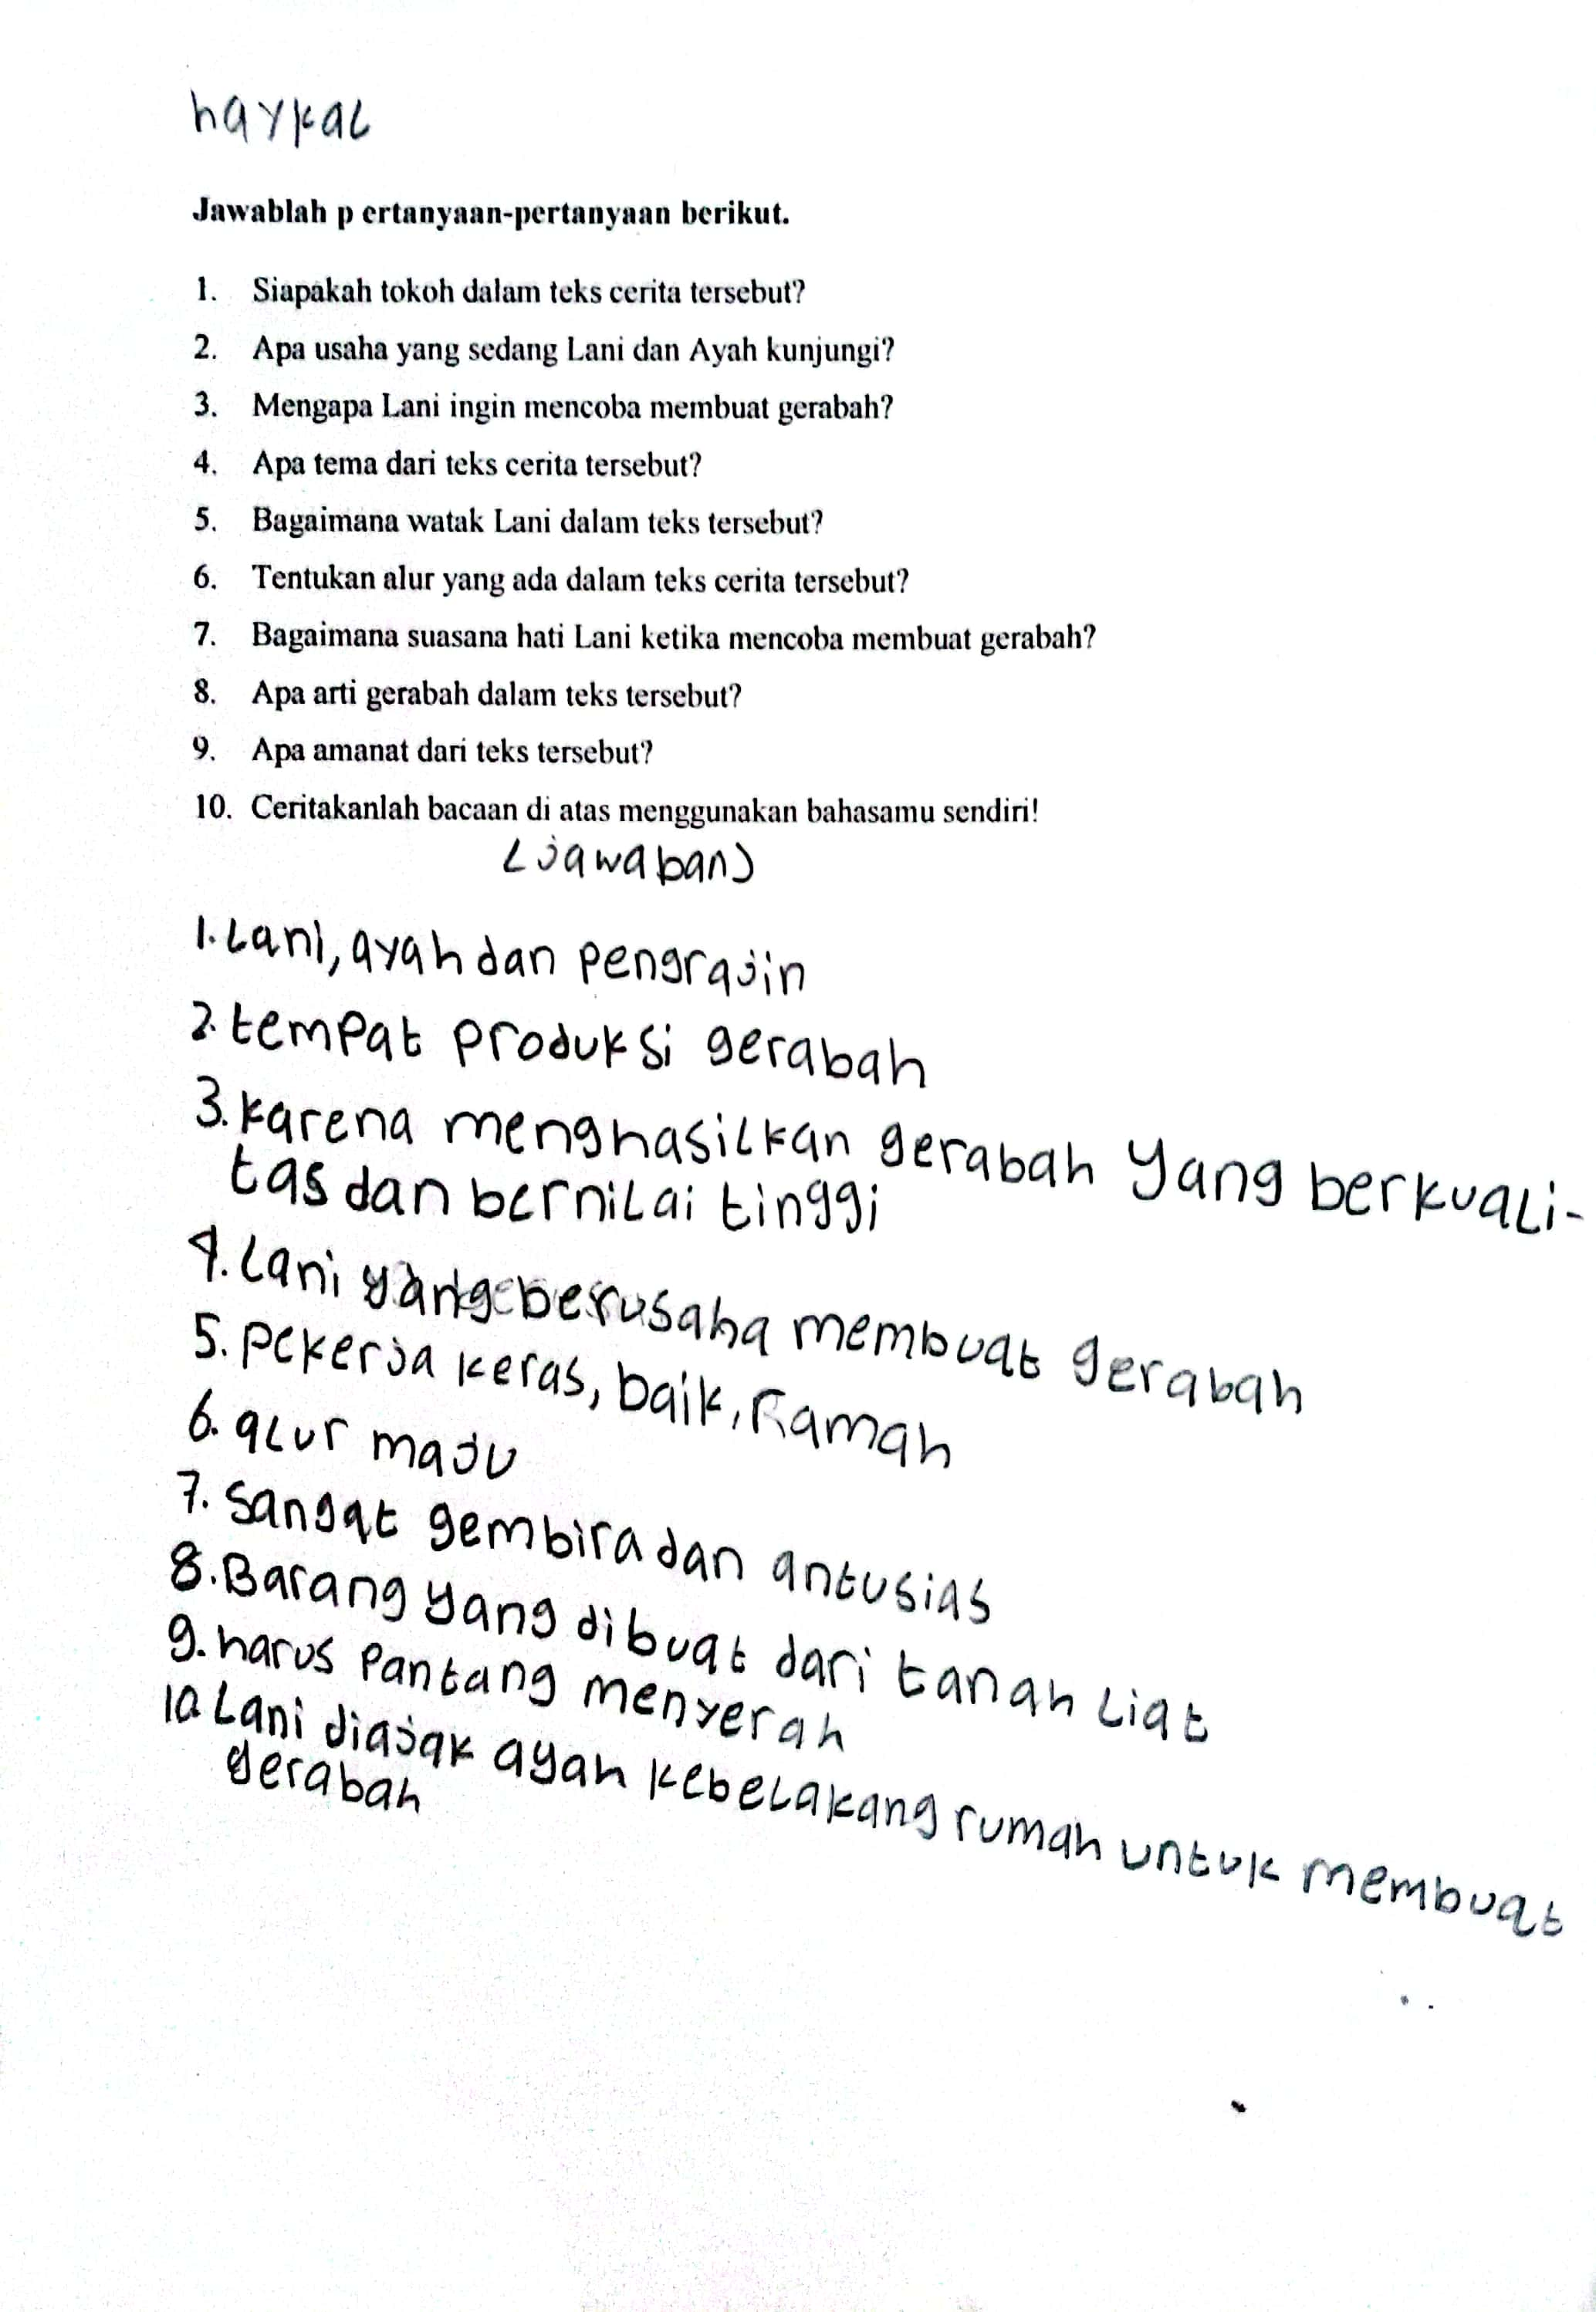 haykal
Jawablah p ertanyaan-pertanyaan berikut.
1. Siapakah tokoh dalam teks cerita tersebut?
2. Apa usaha yang sedang Lani dan Ayah kunjungi?
3. Mengapa Lani ingin mencoba membuat gerabah?
4. Apa tema dari teks cerita tersebut?
5. Bagaimana watak Lani dalam teks tersebut?
6. Tentukan alur yang ada dalam teks cerita tersebut?
7. Bagaimana suasana hati Lani ketika mencoba membuat gerabah?
8. Apa arti gerabah dalam teks tersebut?
9. Apa amanat dari teks tersebut?
10. Ceritakanlah bacaan di atas menggunakan bahasamu sendiri!
(jawaban)
1. Lani, ayah dan pengrajin
2. tempat produksi gerabah
3. karena menghasilkan gerabah yang berkuali-
tas dan bernilai tinggi
4. Lani yang berusaha membuat gerabah
5. pekerja keras, baik, Ramah
6. alur maju
7. sangat gembira dan antusias
8. Barang yang dibuat dari tanah liat
9. harus pantang menyerah
10 Lani diajak ayah kebelakang rumah untuk membuat
gerabah